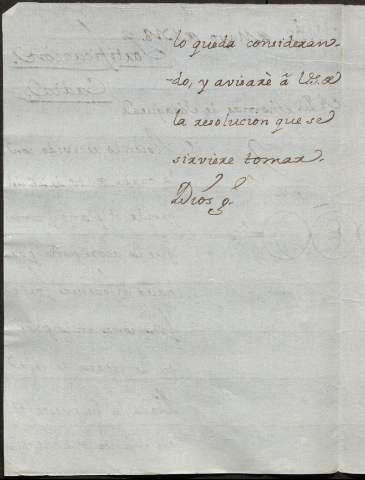 lo queda consideran-
do, y avisarè â V.S.
la resolucion que se
sirviere tomar.
Dios g.